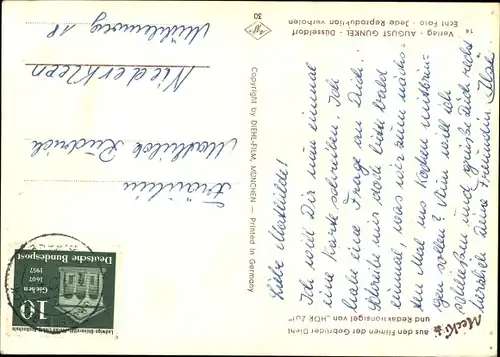 Mecki
aus den Filmen der Gebrüder Diehl
und Redaktionsigel von „HÖR ZU!"
Liebe Mathilde!
Ich will Dir nun einmal
eine Karte schreiben. Ich
habe eine Frage an Dich:
Schreibe mir doch bitte bald
einmal, was wir zum nächs-
ten Mal ins Kochen mitbrin-
gen sollen? Nun will ich
schließen und grüße Dich recht
herzlich Deine Freundin Ilse
Copyright by DIEHL-FILM, MÜNCHEN — Printed in Germany
14 Verlag: AUGUST GUNKEL · Düsseldorf
Echt Foto · Jede Reproduktion verboten
30
10
Gießen
1607
1957
Ludwigs-Universität
Deutsche Bundespost
Fräulein
Mathilde
Niederkleen
Mühlenweg 18